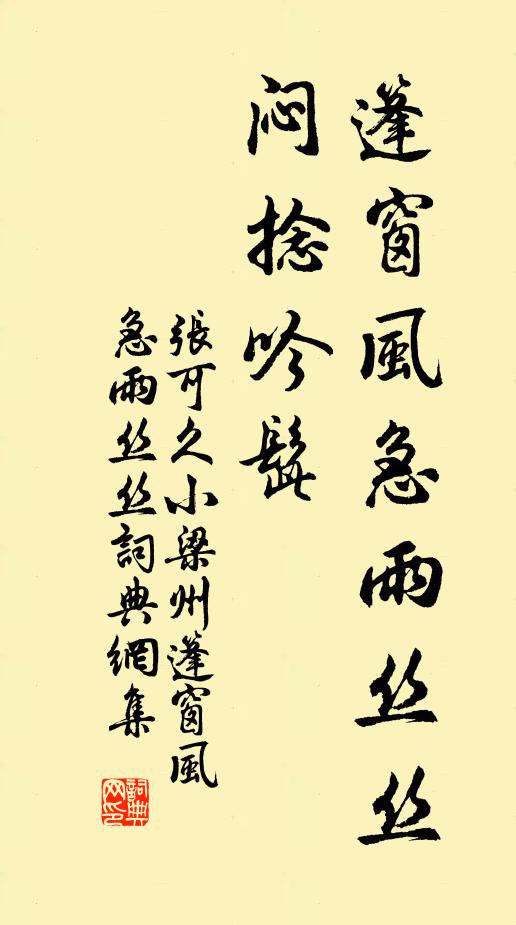 蓬窗風急雨丝丝
闷捻吟髭
張可久小梁州蓬窗風
急雨丝丝詞典網集
詞典网印